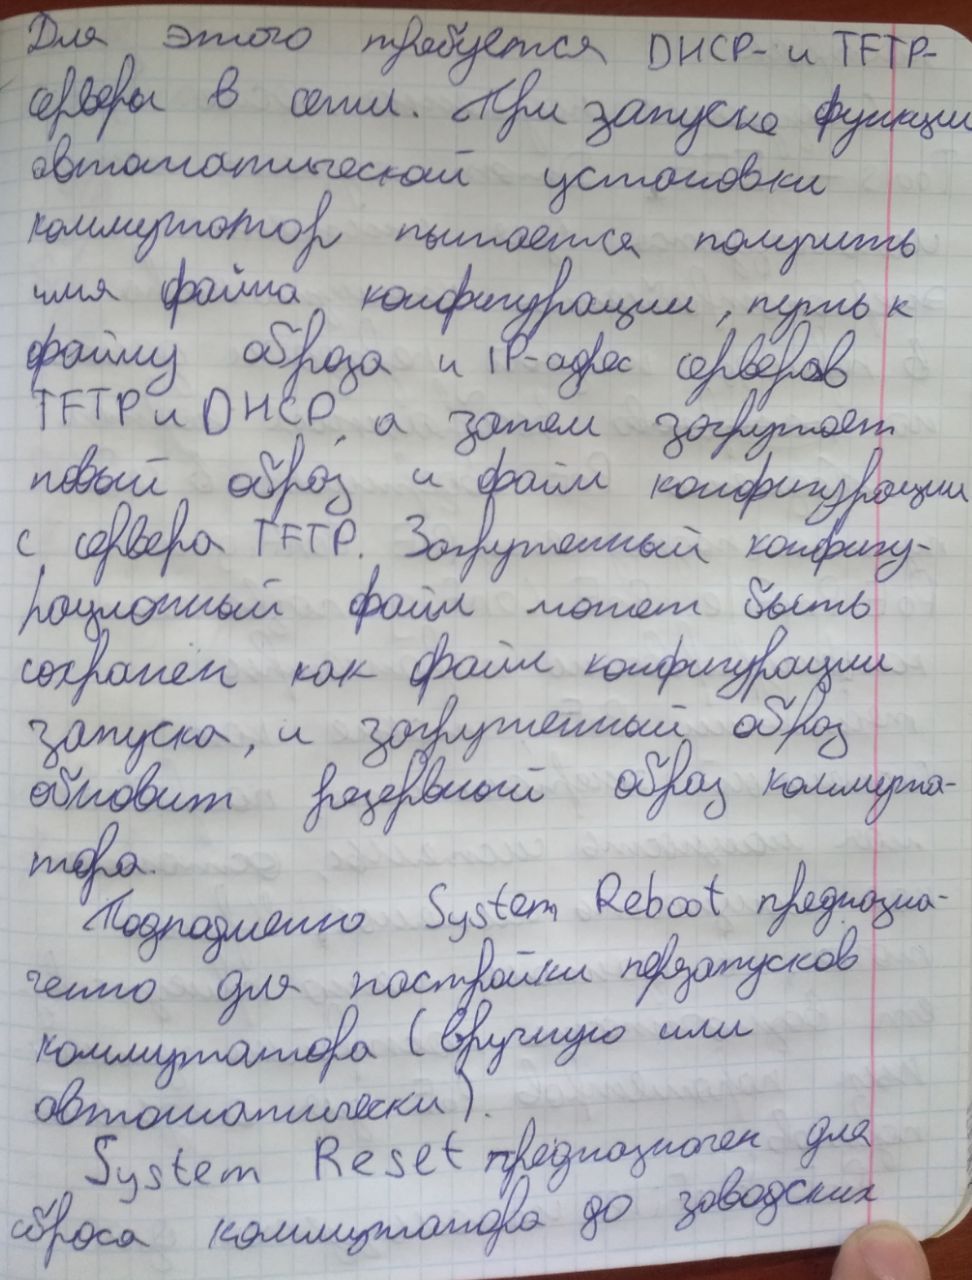 Для этого требуется DHCP- и TFTP-
серверы в сети. При запуске функции
автоматической установки
коммутатор пытается получить
имя файла конфигурации, путь к
файлу образа и IP-адрес серверов
TFTP и DHCP, а затем загружает
новый образ и файл конфигурации
с сервера TFTP. Загруженный конфигу-
рационный файл может быть
сохранён как файл конфигурации
запуска, и загруженный образ
обновит резервный образ коммута-
тора.
Подпадменю System Reboot предназна-
чено для настройки перзапусков
коммутатора (вручную или
автоматически).
System Reset предназначен для
сброса коммутатора до заводских